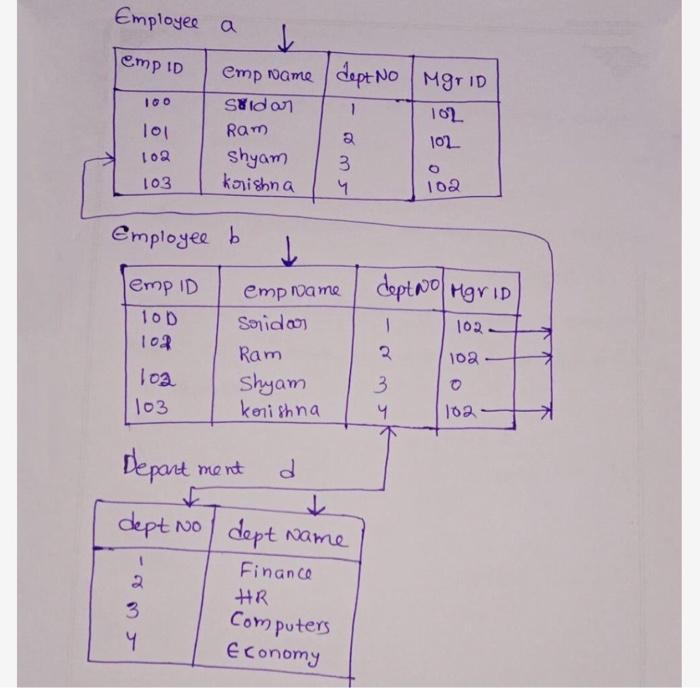 Employee a
emp ID emp Name dept No Mgr ID
100 Sridar 1 102
101 Ram 2 102
102 Shyam 3 0
103 krishna 4 102
Employee b
emp ID emp Name dept No Mgr ID
100 Sridar 1 102
102 Ram 2 102
102 Shyam 3 0
103 krishna 4 102
Department d
dept No dept Name
1 Finance
2 HR
3 Computers
4 Economy